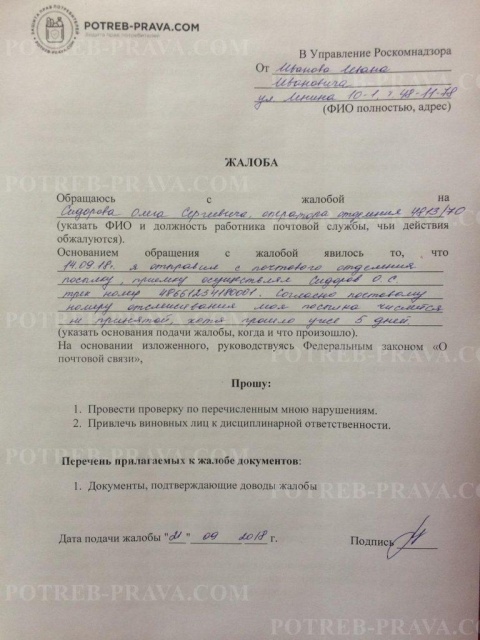 POTREB-PRAVA.COM
Защита прав потребителей
В Управление Роскомнадзора
От Иванова Ивана
Ивановича
ул. Ленина 10-1 т 48-11-78
(ФИО полностью, адрес)
ЖАЛОБА
Обращаюсь с жалобой на
Сидорова Олега Сергеевича, оператора отделения 4813/70
(указать ФИО и должность работника почтовой службы, чьи действия
обжалуются).
Основанием обращения с жалобой явилось то, что
14.09.18г. я отправил с почтового отделения
посылку, приемку осуществлял Сидоров О.С
трек номер 48661234180001. Согласно почтовому
номеру отслеживания моя посылка числится
не принятой, хотя прошло уже 5 дней.
(указать основания подачи жалобы, когда и что произошло).
На основании изложенного, руководствуясь Федеральным законом «О
почтовой связи»,
Прошу:
1. Провести проверку по перечисленным мною нарушениям.
2. Привлечь виновных лиц к дисциплинарной ответственности.
Перечень прилагаемых к жалобе документов:
1. Документы, подтверждающие доводы жалобы
Дата подачи жалобы "21" 09 2018 г. Подпись